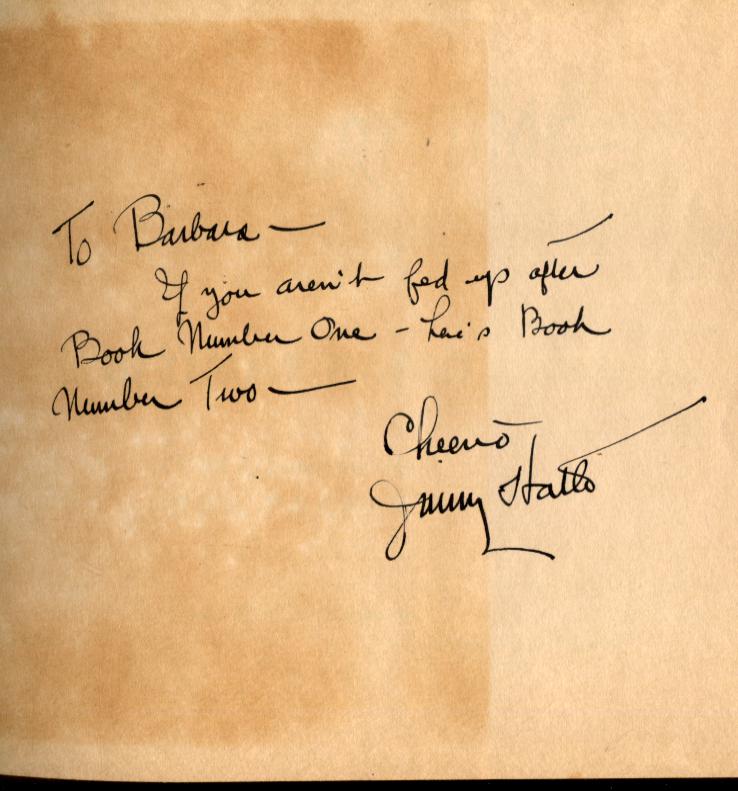 To Barbara —
If you aren't fed up after
Book Number One - here's Book
Number Two —
Cheerio
Jimmy Hatlo